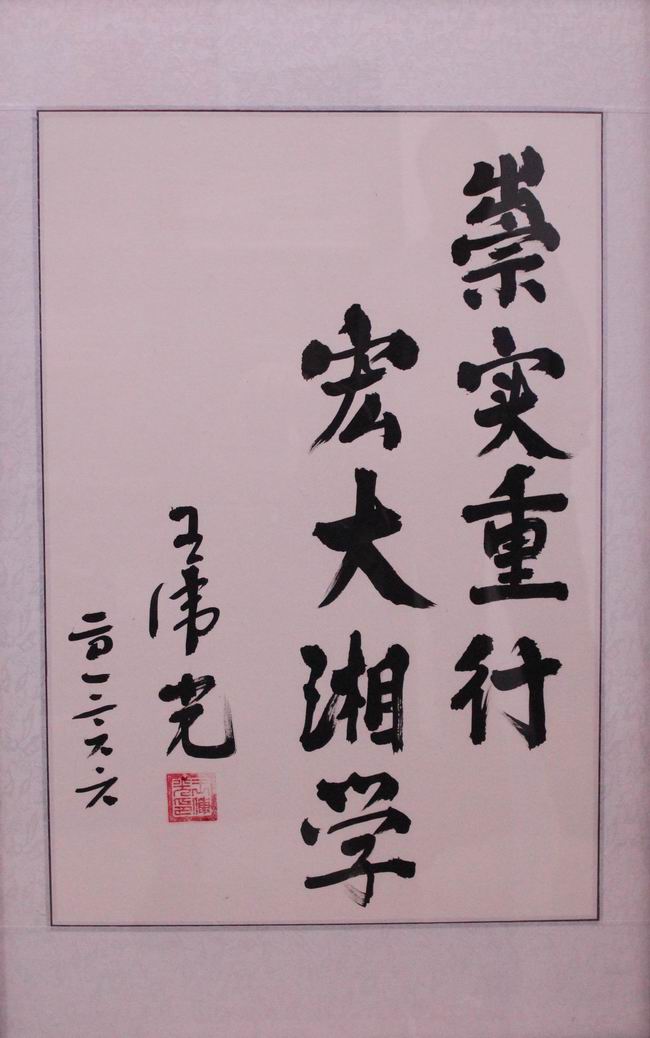 崇实重行
宏大湘学
王偉光
二〇一二.六.六